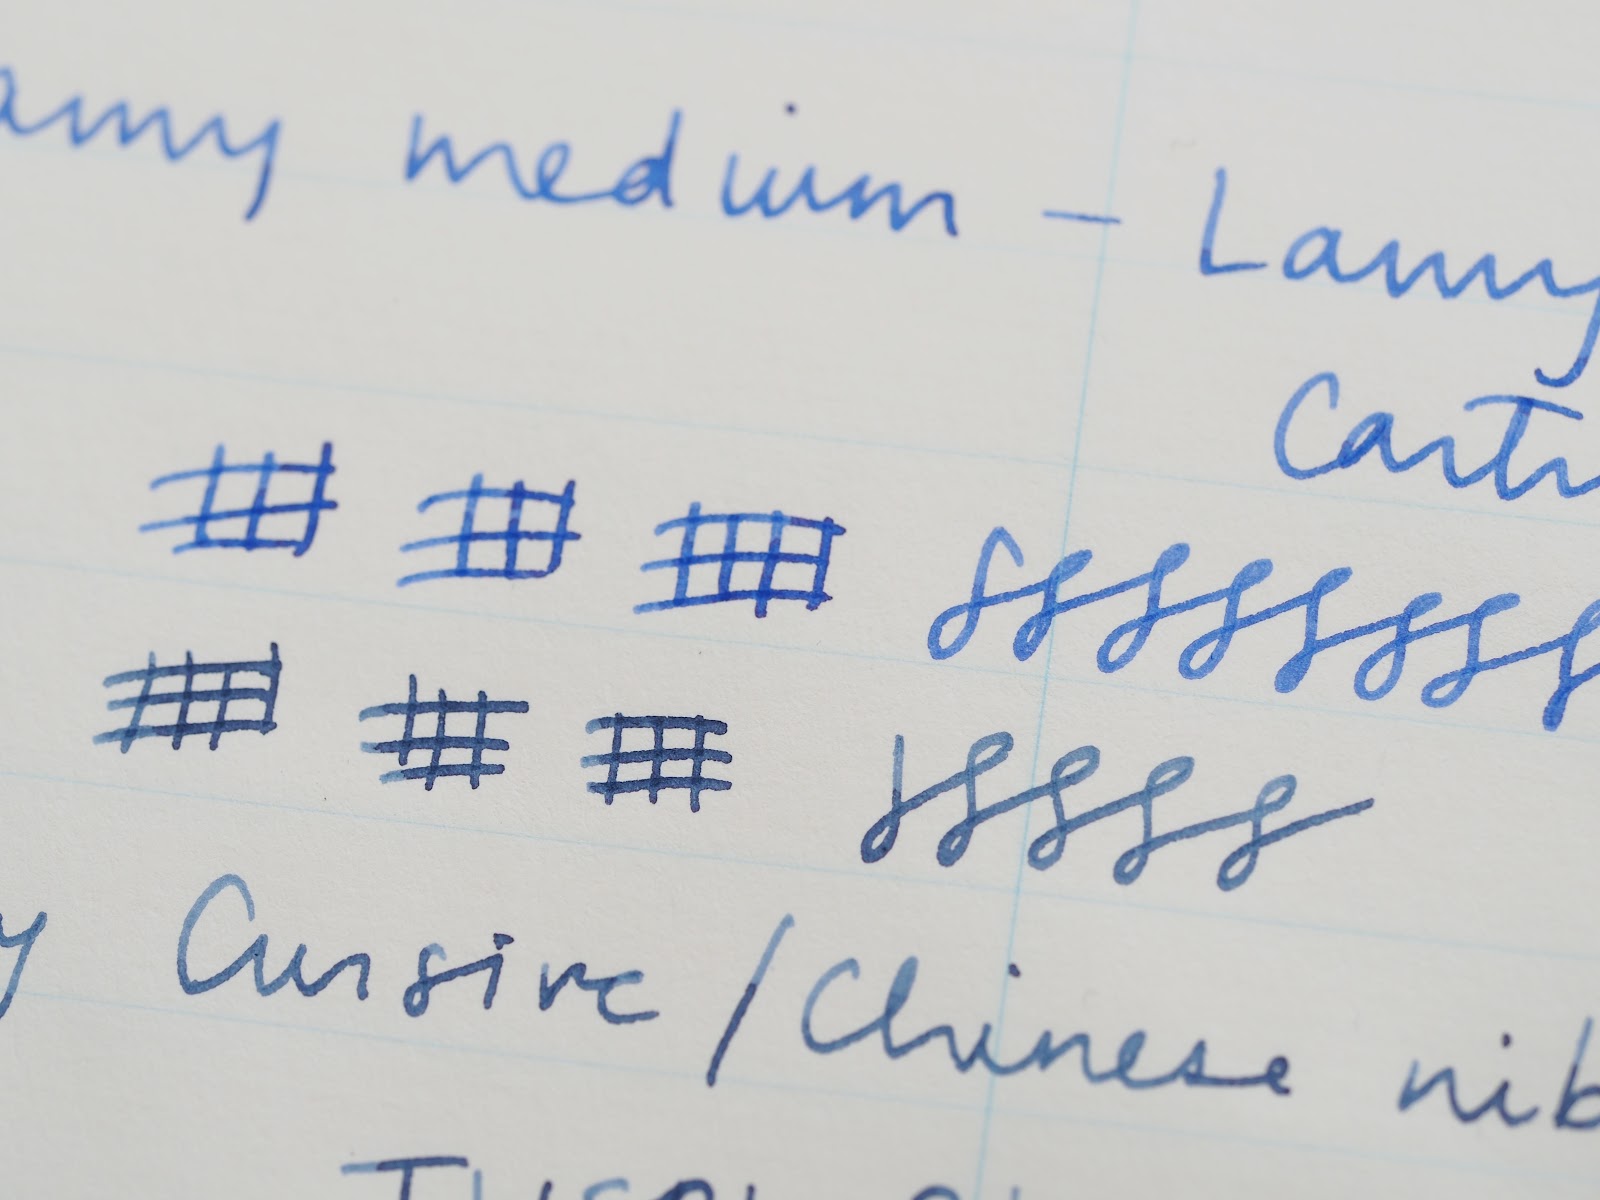 amy medium - Lamy
Cart
y Cursive / Chinese nib